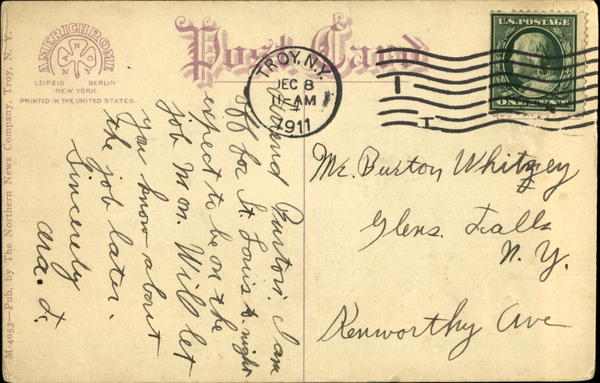 Post Card
AMERICHROME
LEIPZIG BERLIN
NEW YORK
PRINTED IN THE UNITED STATES.
M-4053—Pub. by The Northern News Company, Troy, N. Y.
TROY, N.Y.
DEC 8
11-AM
1911
U.S. POSTAGE
ONE CENT
Friend Burton. I am
off for St. Louis to-night
expect to be on the
job Mon. Will let
you know about
the job later.
Sincerely
Mr. Burton Whitney
Glens. Falls
N. Y.
Kenworthy Ave